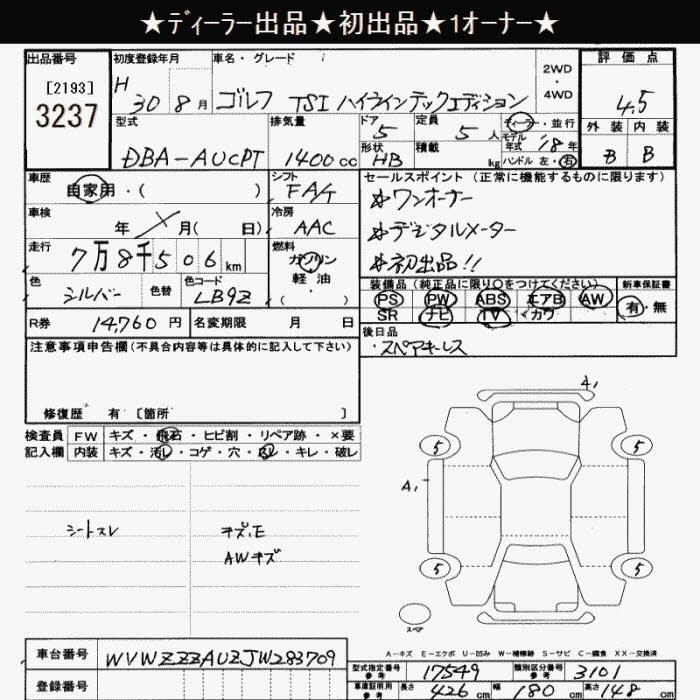 ★ﾃﾞｨｰﾗｰ出品★初出品★1オーナー★
出品番号
[2193]
3237
初度登録年月
H 30 8月
車名・グレード
ゴルフ TSI ハイラインテックエディション
2WD
・
4WD
評価点
4.5
外装 内装
B B
型式
DBA-AUCPT
排気量
1400cc
ドア
5
定員
5人
ディーラー・並行
形状
HB
積載
kg
モデル年式 18年
ハンドル 左・右
車歴
自家用・( )
シフト
FA/7
セールスポイント(正常に機能するものに限ります)
☆ワンオーナー
☆デジタルメーター
☆初出品!!
車検
年 月( 日)
冷房
AAC
走行
7万8千506km
燃料
ガソリン
軽油
・
( )
色
シルバー
色替
色コード
LB9Z
装備品(純正品に限り○をつけてください)
PS PW ABS エアB AW
SR ナビ TV カワ
新車保証書
有・無
R券
14,760円
名変期限 月 日
後日品
・スペアキーレス
注意事項申告欄(不具合内容等は具体的に記入して下さい)
修復歴 有[箇所 ]
検査員
記入欄
FW キズ・飛石・ヒビ割・リペア跡・×要
内装 キズ・汚レ・コゲ・穴・スレ・キレ・破レ
シートスレ
キズ,E
AWキズ
4,
5 5
A,
5 5
スペア
A-キズ E-エクボ U-凹み W-補修跡 S-サビ C-腐食 XX-交換済
車台番号
WVWZZZAUZJW283709
登録番号
型式指定番号
参考
17549
類別区分番号
参考
3101
車庫証明用
参考
長さ 426cm 幅 180cm 高さ 148cm